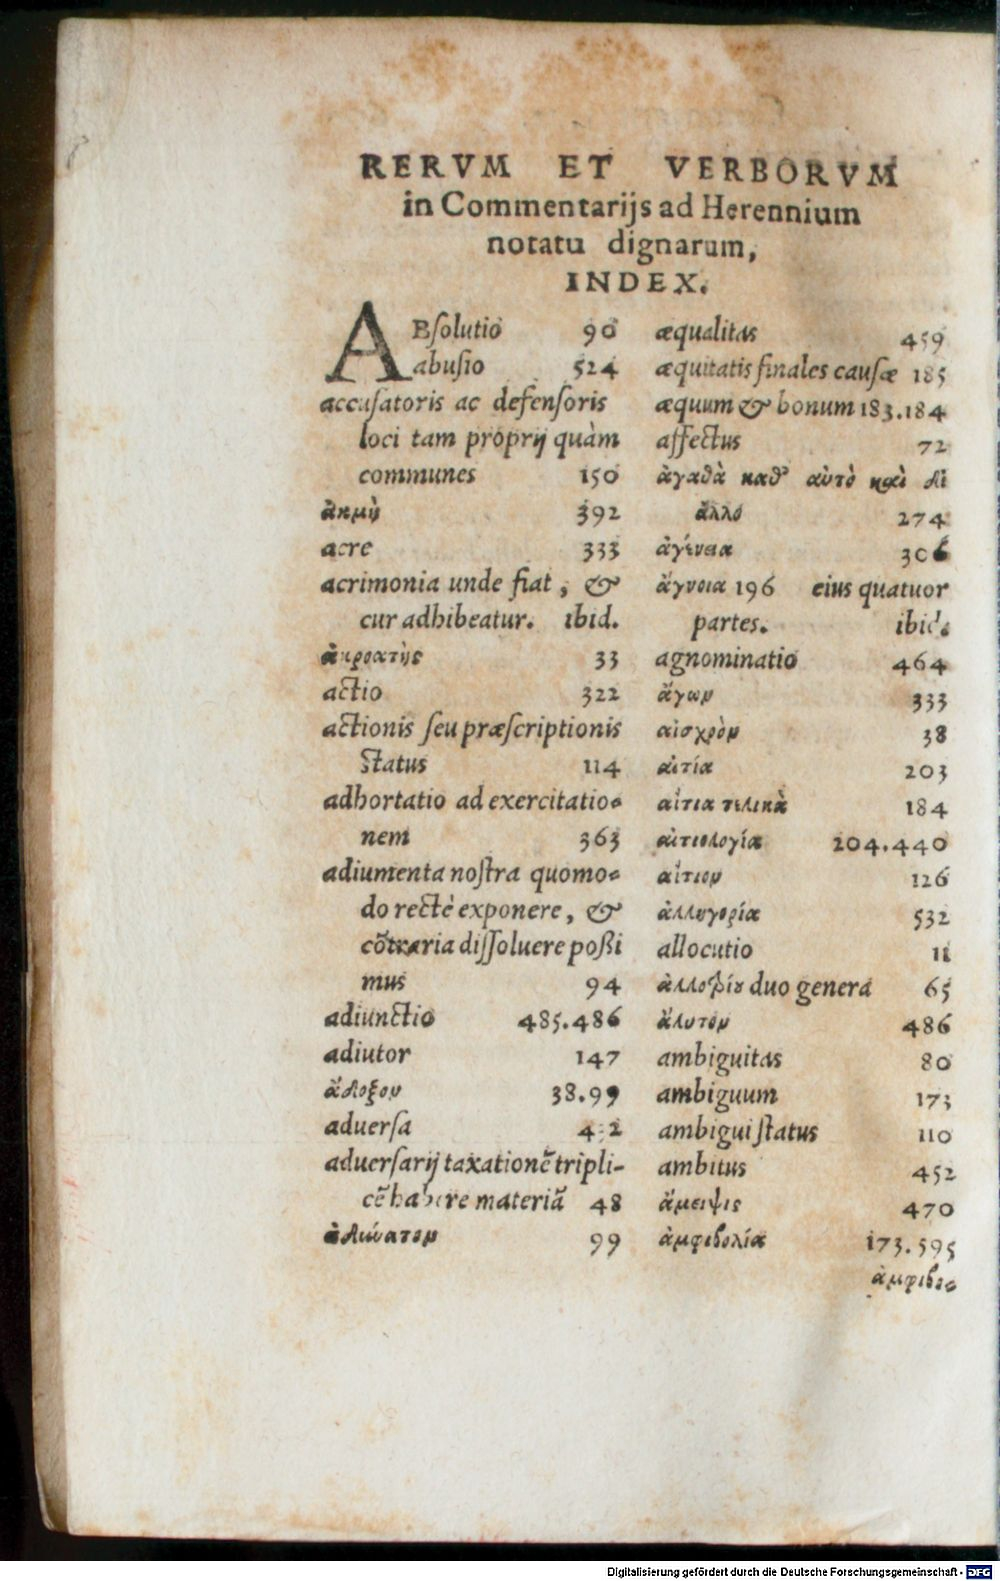 RERVM ET VERBORVM
in Commentarijs ad Herennium
notatu dignarum,
INDEX.
ABsolutio 90
abusio 524
accusatoris ac defensoris
loci tam proprij quàm
communes 150
ἀκμὴ 392
acre 333
acrimonia unde fiat, &
cur adhibeatur. ibid.
ἀκροατὴς 33
actio 322
actionis seu præscriptionis
status 114
adhortatio ad exercitatio-
nem 363
adiumenta nostra quomo-
do rectè exponere, &
cōtraria dissoluere possi
mus 94
adiunctio 485.486
adiutor 147
ἄδοξον 38.99
aduersa 4 2
aduersarij taxationē tripli-
cē habere materiā 48
ἀδιώατον 99
æqualitas 459
æquitatis finales causæ 185
æquum & bonum 183.184
affectus 72
ἀγαθὰ καθ' αὐτὸ καὶ δι
ἄλλό 274
ἀγένεια 306
ἄγνοια 196 eius quatuor
partes. ibid.
agnominatio 464
ἄγων 333
αἰσχρὸν 38
αἰτία 203
αἴτια τελικὰ 184
αἰτιολογία 204.440
αἴτιον 126
ἀλληγορία 532
allocutio 11
duo genera 65
ἄλυτον 486
ambiguitas 80
ambiguum 173
ambigui status 110
ambitus 452
ἄμειψις 470
ἀμφιβολία 173.595
ἀμφιβο-
Digitalisierung gefördert durch die Deutsche Forschungsgemeinschaft - DFG